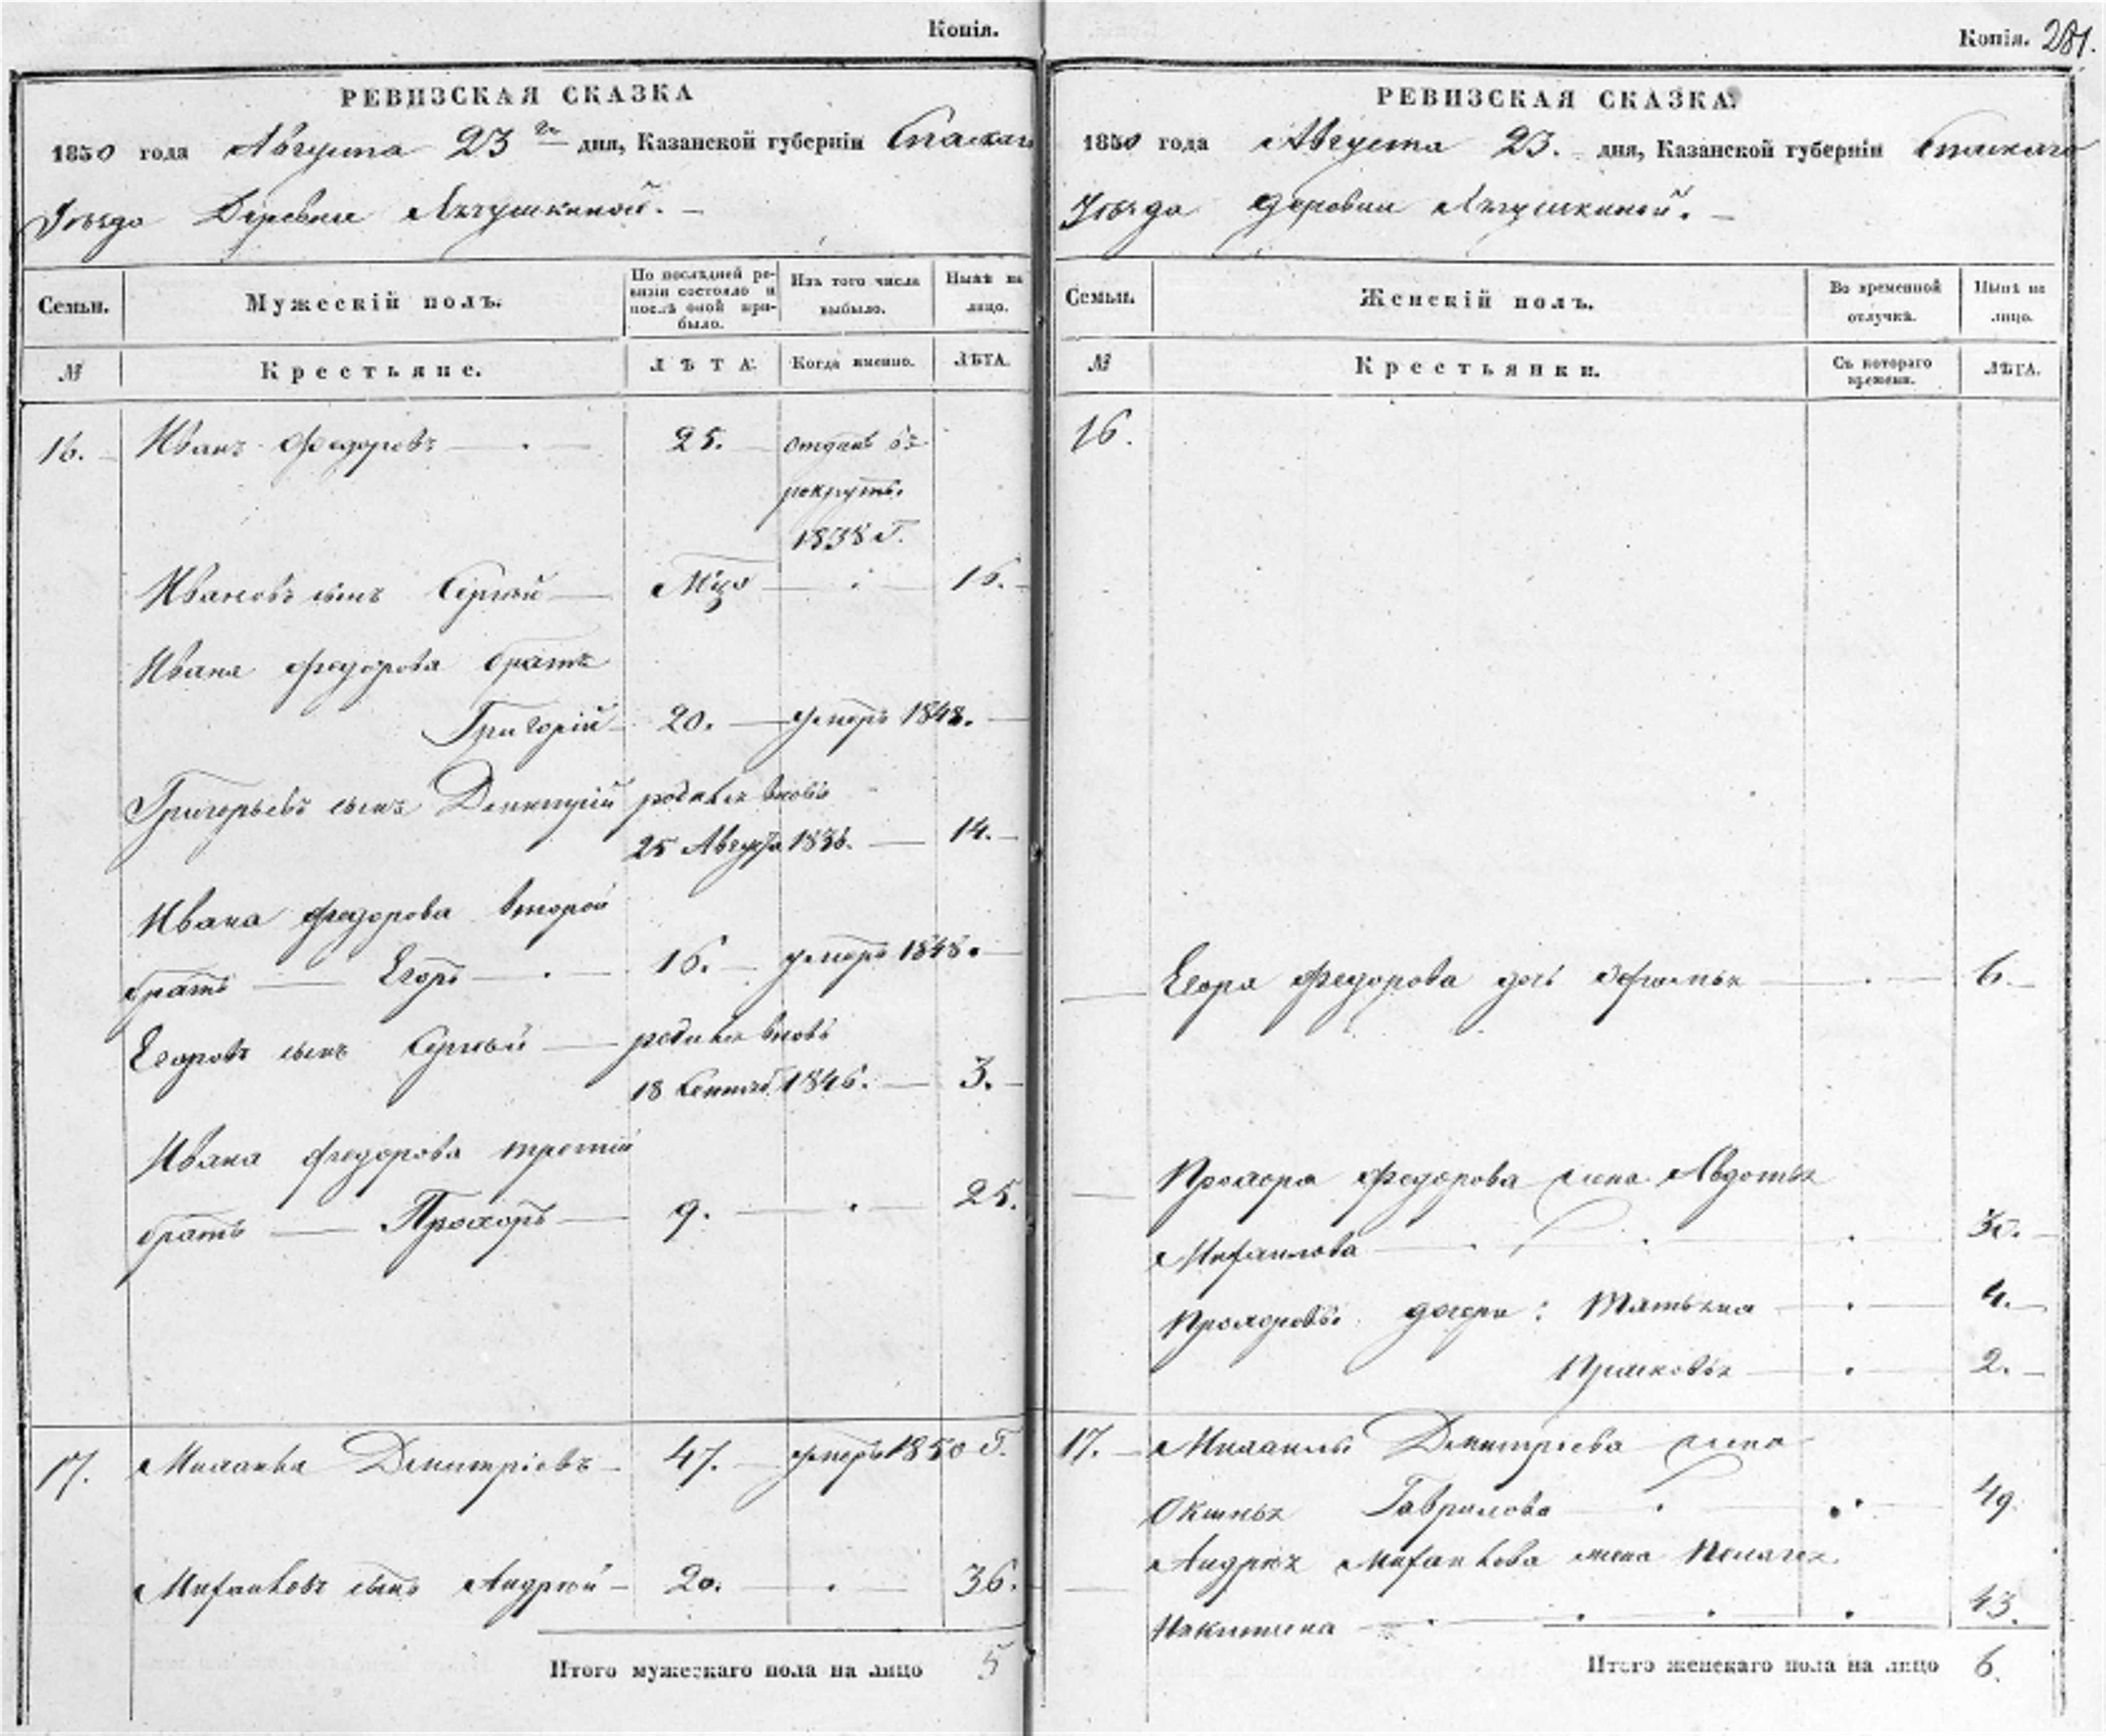 Копія.
РЕВИЗСКАЯ СКАЗКА
1850 года Августа 23го дня, Казанской губерніи Спаскаго
Уѣзда Деревни
Семьи.
Мужескій полъ.
По послѣдней ре-
визіи состояло и
послѣ оной при-
было.
Изъ того числа
выбыло.
Нынѣ на
лицо.
№
Крестьяне.
ЛѢТА.
Когда именно.
ЛѢТА.
16. Иванъ Федоровъ 25. отданъ въ
рекруты.
1838 г.
Ивановъ сынъ Сергѣй 16.
Ивана Федорова братъ
Григорій 20. умеръ 1848.
Григорьевъ сынъ Димитрій родился вновь
25 Августа 1836. 14.
Ивана Федорова второй
братъ Егоръ 16. умеръ 1848.
Егоровъ сынъ Сергѣй родился вновь
18 Сентяб. 1846. 3.
Ивана Федорова третій
братъ Прохоръ 9. 25.
17. Михаила Димитріевъ 47. умеръ 1850 г.
Михайловъ сынъ Андрей 20. 36.
Итого мужескаго пола на лицо 5
Копія. 281.
РЕВИЗСКАЯ СКАЗКА.
1850 года Августа 23. дня, Казанской губерніи Спаскаго
Уѣзда деревни
Семьи.
Женскій полъ.
Во временной
отлучкѣ.
Нынѣ на
лицо.
№
Крестьянки.
Съ котораго
времени.
ЛѢТА.
16.
Егора Федорова дочь 6.
Прохора Федорова жена Авдотья
Михайлова 30.
Прохоровы дочери: Татьяна 4.
Прасковья 2.
17. Михаилы Димитріева жена
Оксинья Гаврилова 49.
Андрея Михайлова жена Пелагея
Никитина 43.
Итого женскаго пола на лицо 6.